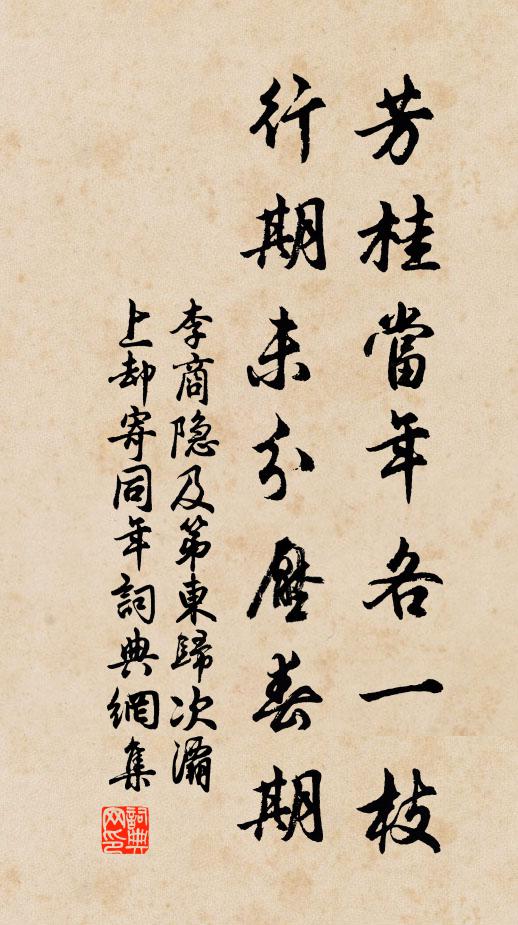 芳桂當年各一枝
行期未分壓春期
李商隐及第東歸次灞
上却寄同年詞典網集
詞典网印